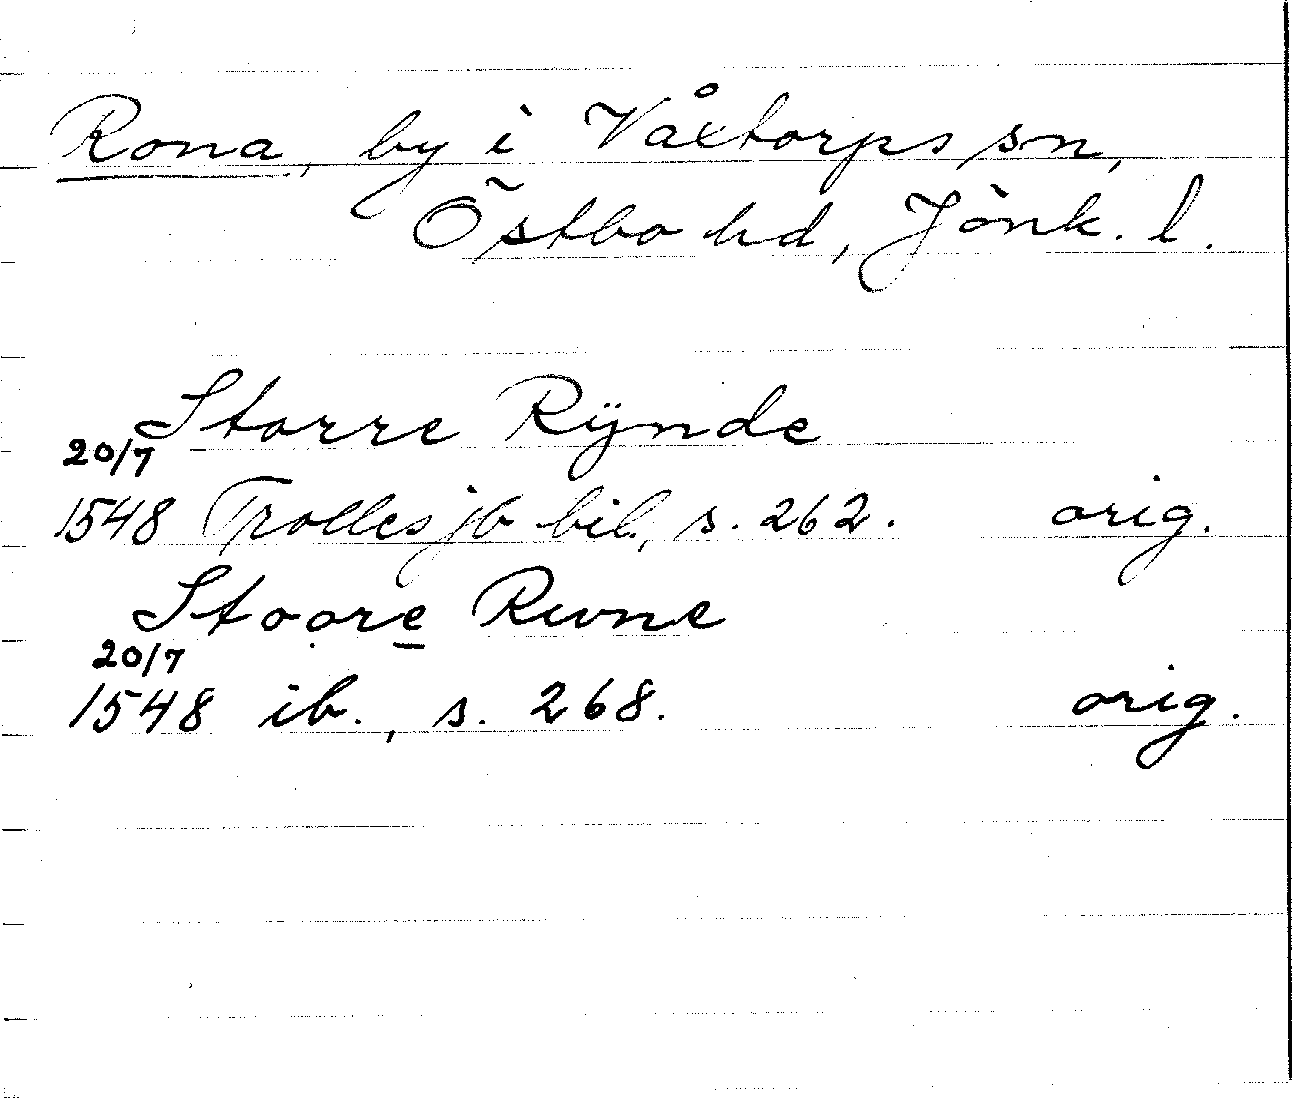 Rona, by i Våxtorps sn,
Östbo hd, Jönk. l.
Storre Rÿnde
20/7
1548 Trolles jb bil., s. 262. orig.
Stoore Rwne
20/7
1548 ib., s. 268. orig.